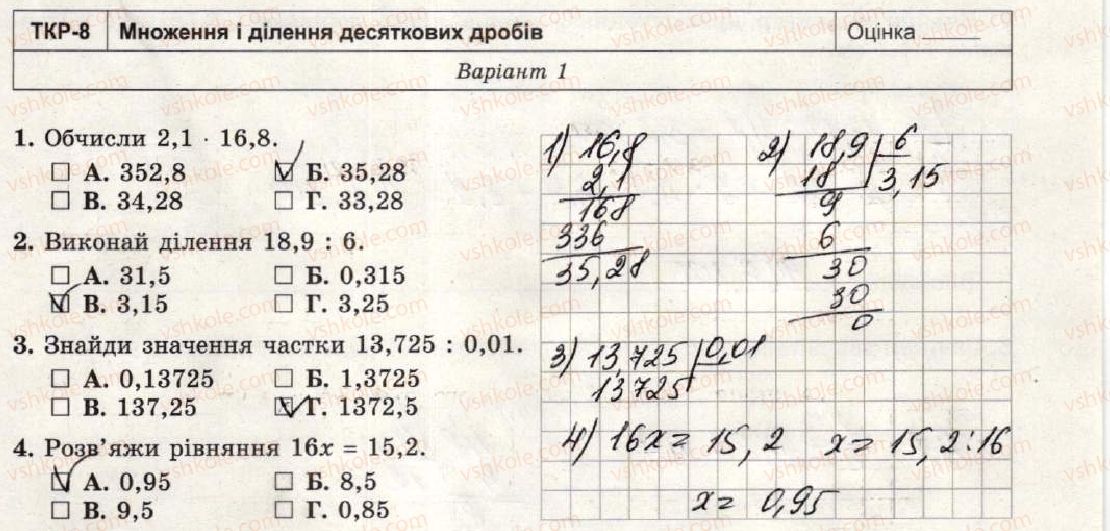 ТКР-8 Множення і ділення десяткових дробів Оцінка
Варіант 1
1. Обчисли 2,1 · 16,8.
А. 352,8 Б. 35,28
В. 34,28 Г. 33,28
2. Виконай ділення 18,9 : 6.
А. 31,5 Б. 0,315
В. 3,15 Г. 3,25
3. Знайди значення частки 13,725 : 0,01.
А. 0,13725 Б. 1,3725
В. 137,25 Г. 1372,5
4. Розв'яжи рівняння 16x = 15,2.
А. 0,95 Б. 8,5
В. 9,5 Г. 0,85
1) 16,8
2,1
168
336
35,28
2) 18,9 6
18 3,15
9
6
30
30
0
3) 13,725 0,01
13725
4) 16x = 15,2 x = 15,2:16
x = 0,95
vshkole.com